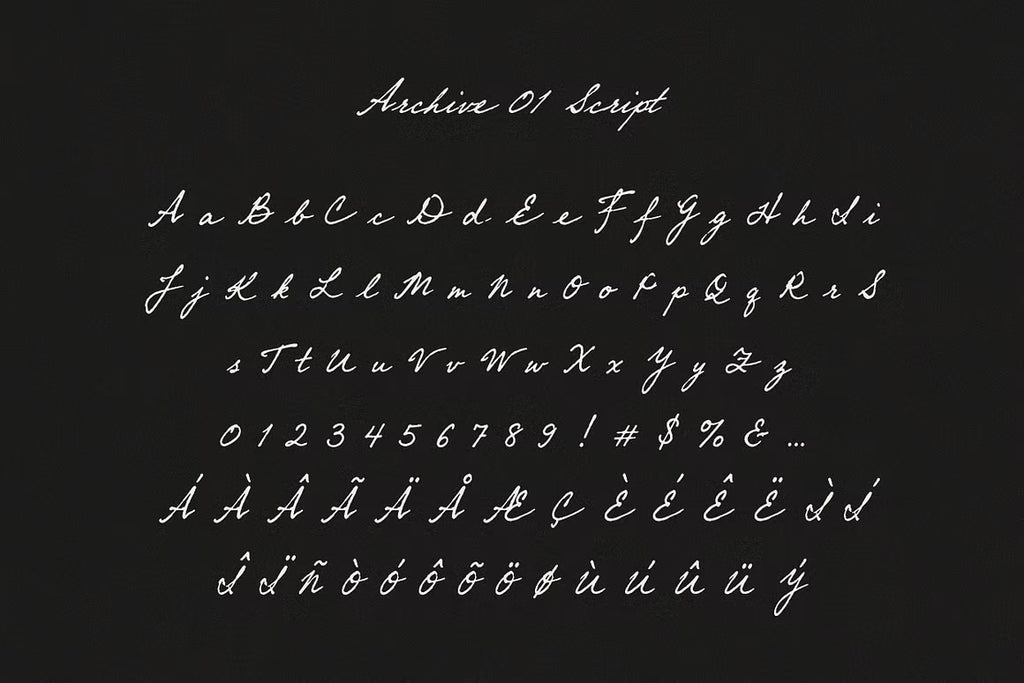 Archive 01 Script
A a B b C c D d E e F f G g H h I i
J j K k L l M m N n O o P p Q q R r S
s T t U u V v W w X x Y y Z z
0 1 2 3 4 5 6 7 8 9 ! # $ % & ...
Á À Â Ã Ä Å Æ Ç È É Ê Ë Ì Í
Î Ï ñ ò ó ô õ ö ø ù ú û ü ý